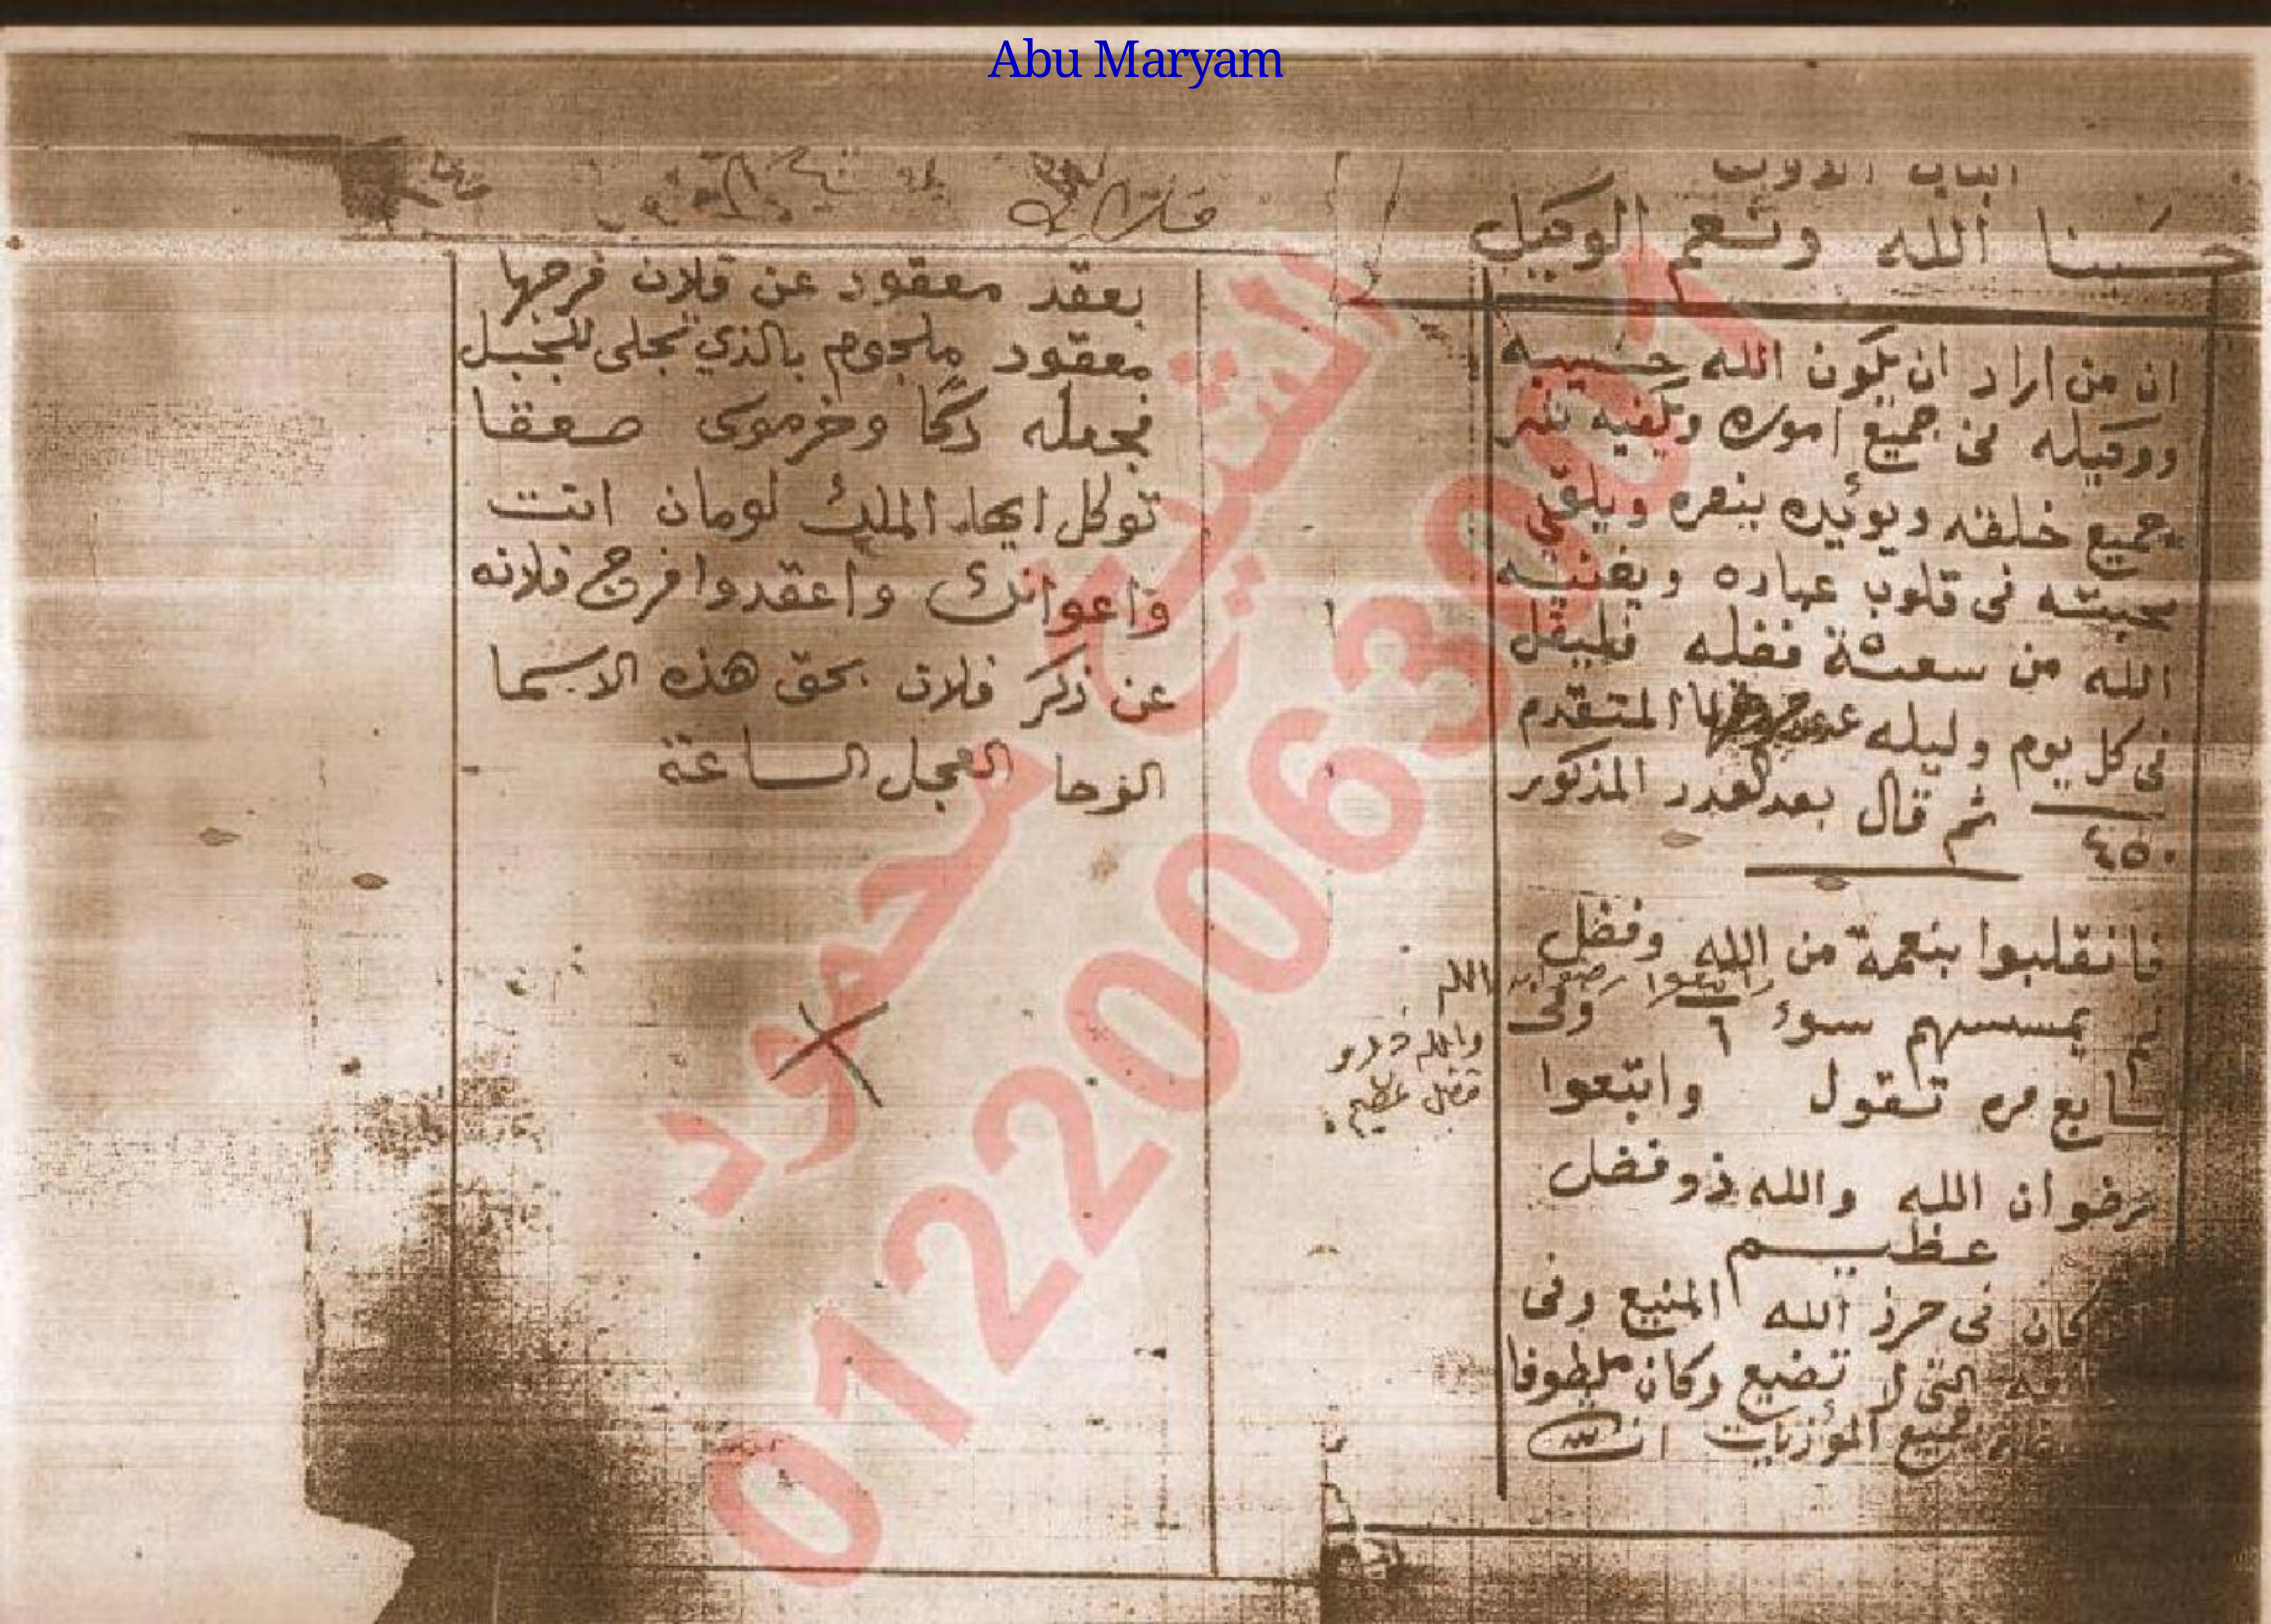 Abu Maryam
الباب الاول
حسبنا الله ونعم الوكيل
ان من اراد ان يكون الله حسيبه
ووكيله فى جميع اموره ويكفيه
جميع خلقه ويوئيده بنصره ويلقى
محبته فى قلوب عباده ويغنيه
الله من سعة فضله فليقل
فى كل يوم وليله عدد المتقدم
٤٥٠ ثم قال بعد العدد المذكور
فانقلبوا بنعمة من الله وفضل
واتبعوا
لم يمسسهم سوء ٦ وفى
سابع مره تقول واتبعوا
رضوان الله والله ذو فضل
عظيم
كان فى حرز الله المنيع وفى
التى لا تضيع وكان ملطوفا
جميع المؤذيات ان
الله
والله ذو
فضل عظيم
بعقد معقود عن فلان فرجها
معقود ملجوم بالذي تجلى للجبل
فجعله دكا وخر موسى صعقا
توكل ايها الملك لومان انت
واعوانك واعقدوا فرج فلانه
عن ذكر فلان بحق هذه الاسما
الوحا العجل الساعة
الشيخ محمود
01220063001